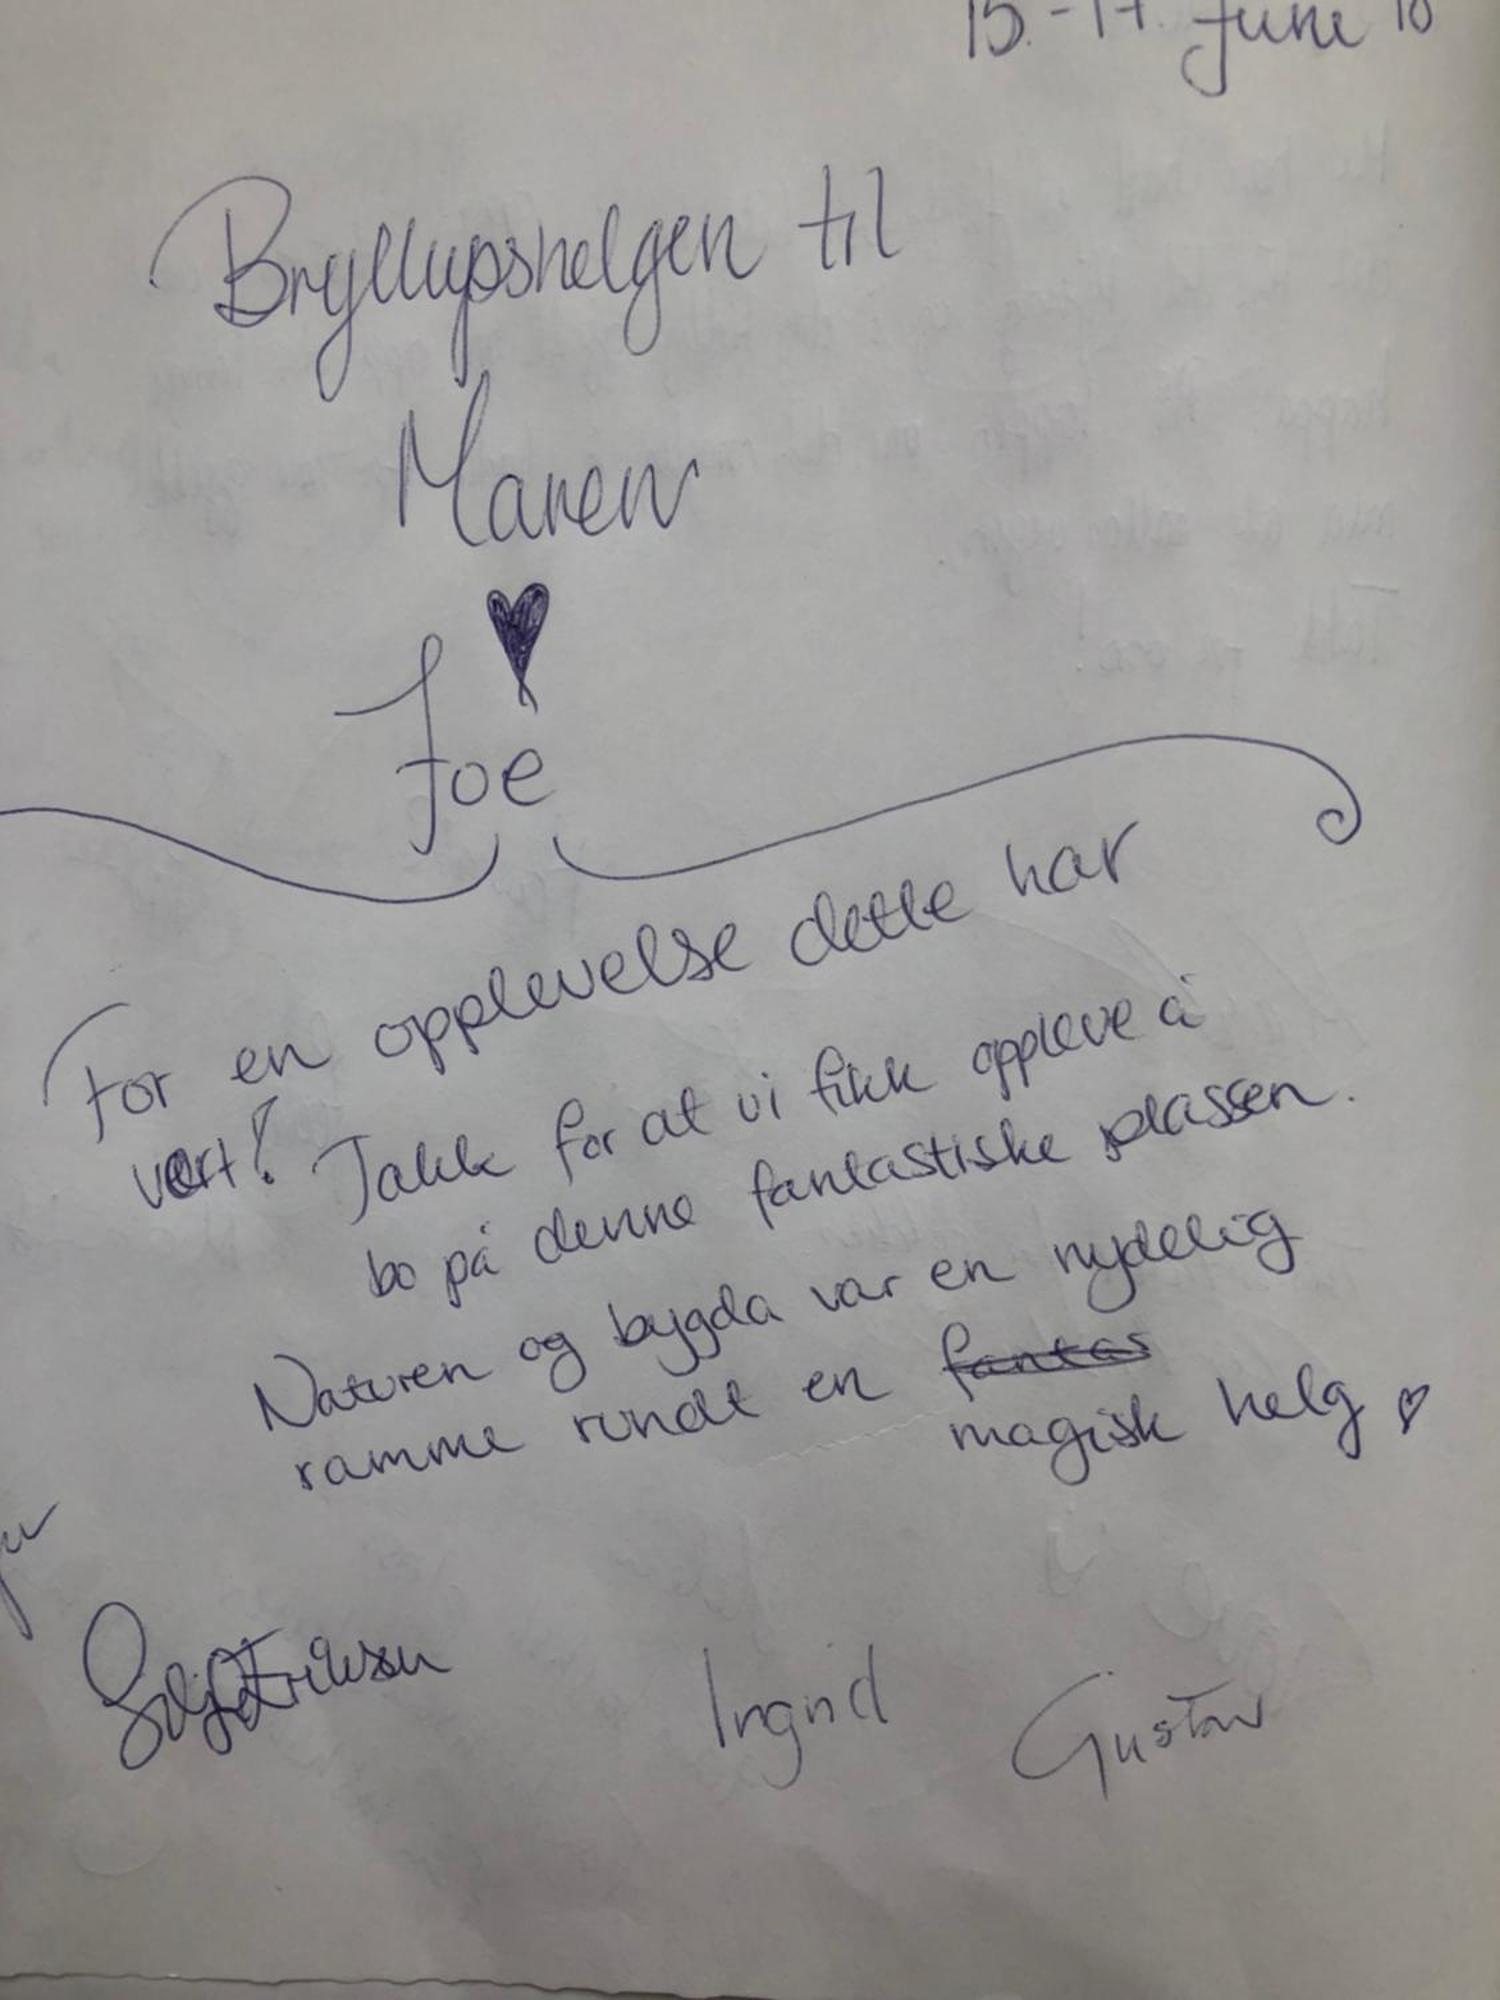 15.-17. Juni 18
Bryllupshelgen til
Maren
♥
Joe
For en opplevelse dette har
vært! Takk for at vi fikk oppleve å
bo på denne fantastiske plassen.
Naturen og bygda var en nydelig
ramme rundt en fantas
magisk helg ♥
Eriksen
Ingrid
Gustav